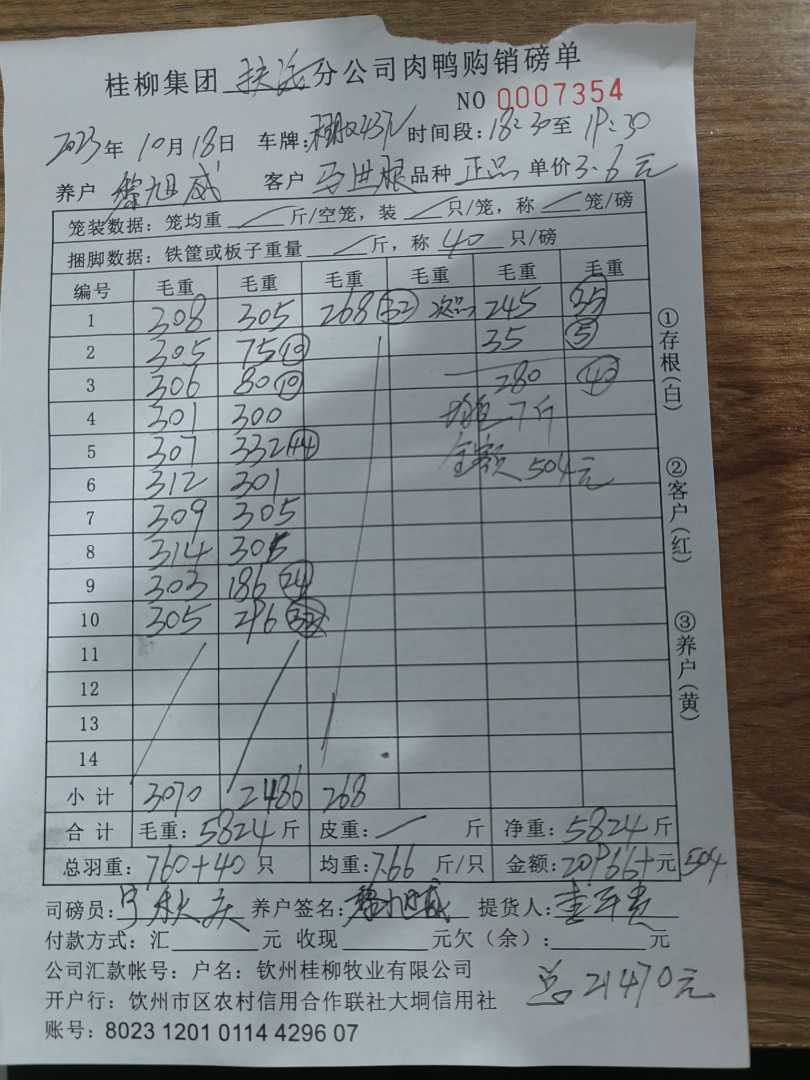 桂柳集团 扶绥 分公司肉鸭购销磅单
NO 0007354
2023年 10月 18日 车牌: 时间段:18:30至 19:30
养户 黎旭威 客户 马进根 品种 正品 单价3.6元
笼装数据: 笼均重 / 斤/空笼, 装 / 只/笼, 称 / 笼/磅
捆脚数据: 铁筐或板子重量 / 斤, 称 40 只/磅
编号 毛重 毛重 毛重 毛重 毛重 毛重
1 308 305 268 (32) 次品 245 (35)
2 305 75 (10) 35 (5)
3 306 80 (10) 280 (40)
4 301 300 均重 7斤
5 307 332 (44) 金额 504元
6 312 301
7 309 305
8 314 305
9 303 186 (24)
10 305 296
11
12
13
14
小计 3070 2486 268
合计 毛重: 5824 斤 皮重: / 斤 净重: 5824 斤
总羽重: 760+40 只 均重: 7.66 斤/只 金额: 20966+元 504
司磅员: 养户签名: 黎旭威 提货人:
付款方式: 汇 元 收现 元欠(余): 元
公司汇款帐号: 户名: 钦州桂柳牧业有限公司
开户行: 饮州市区农村信用合作联社大垌信用社
总 21470元
账号: 8023 1201 0114 4296 07
①存根(白)
②客户(红)
③养户(黄)